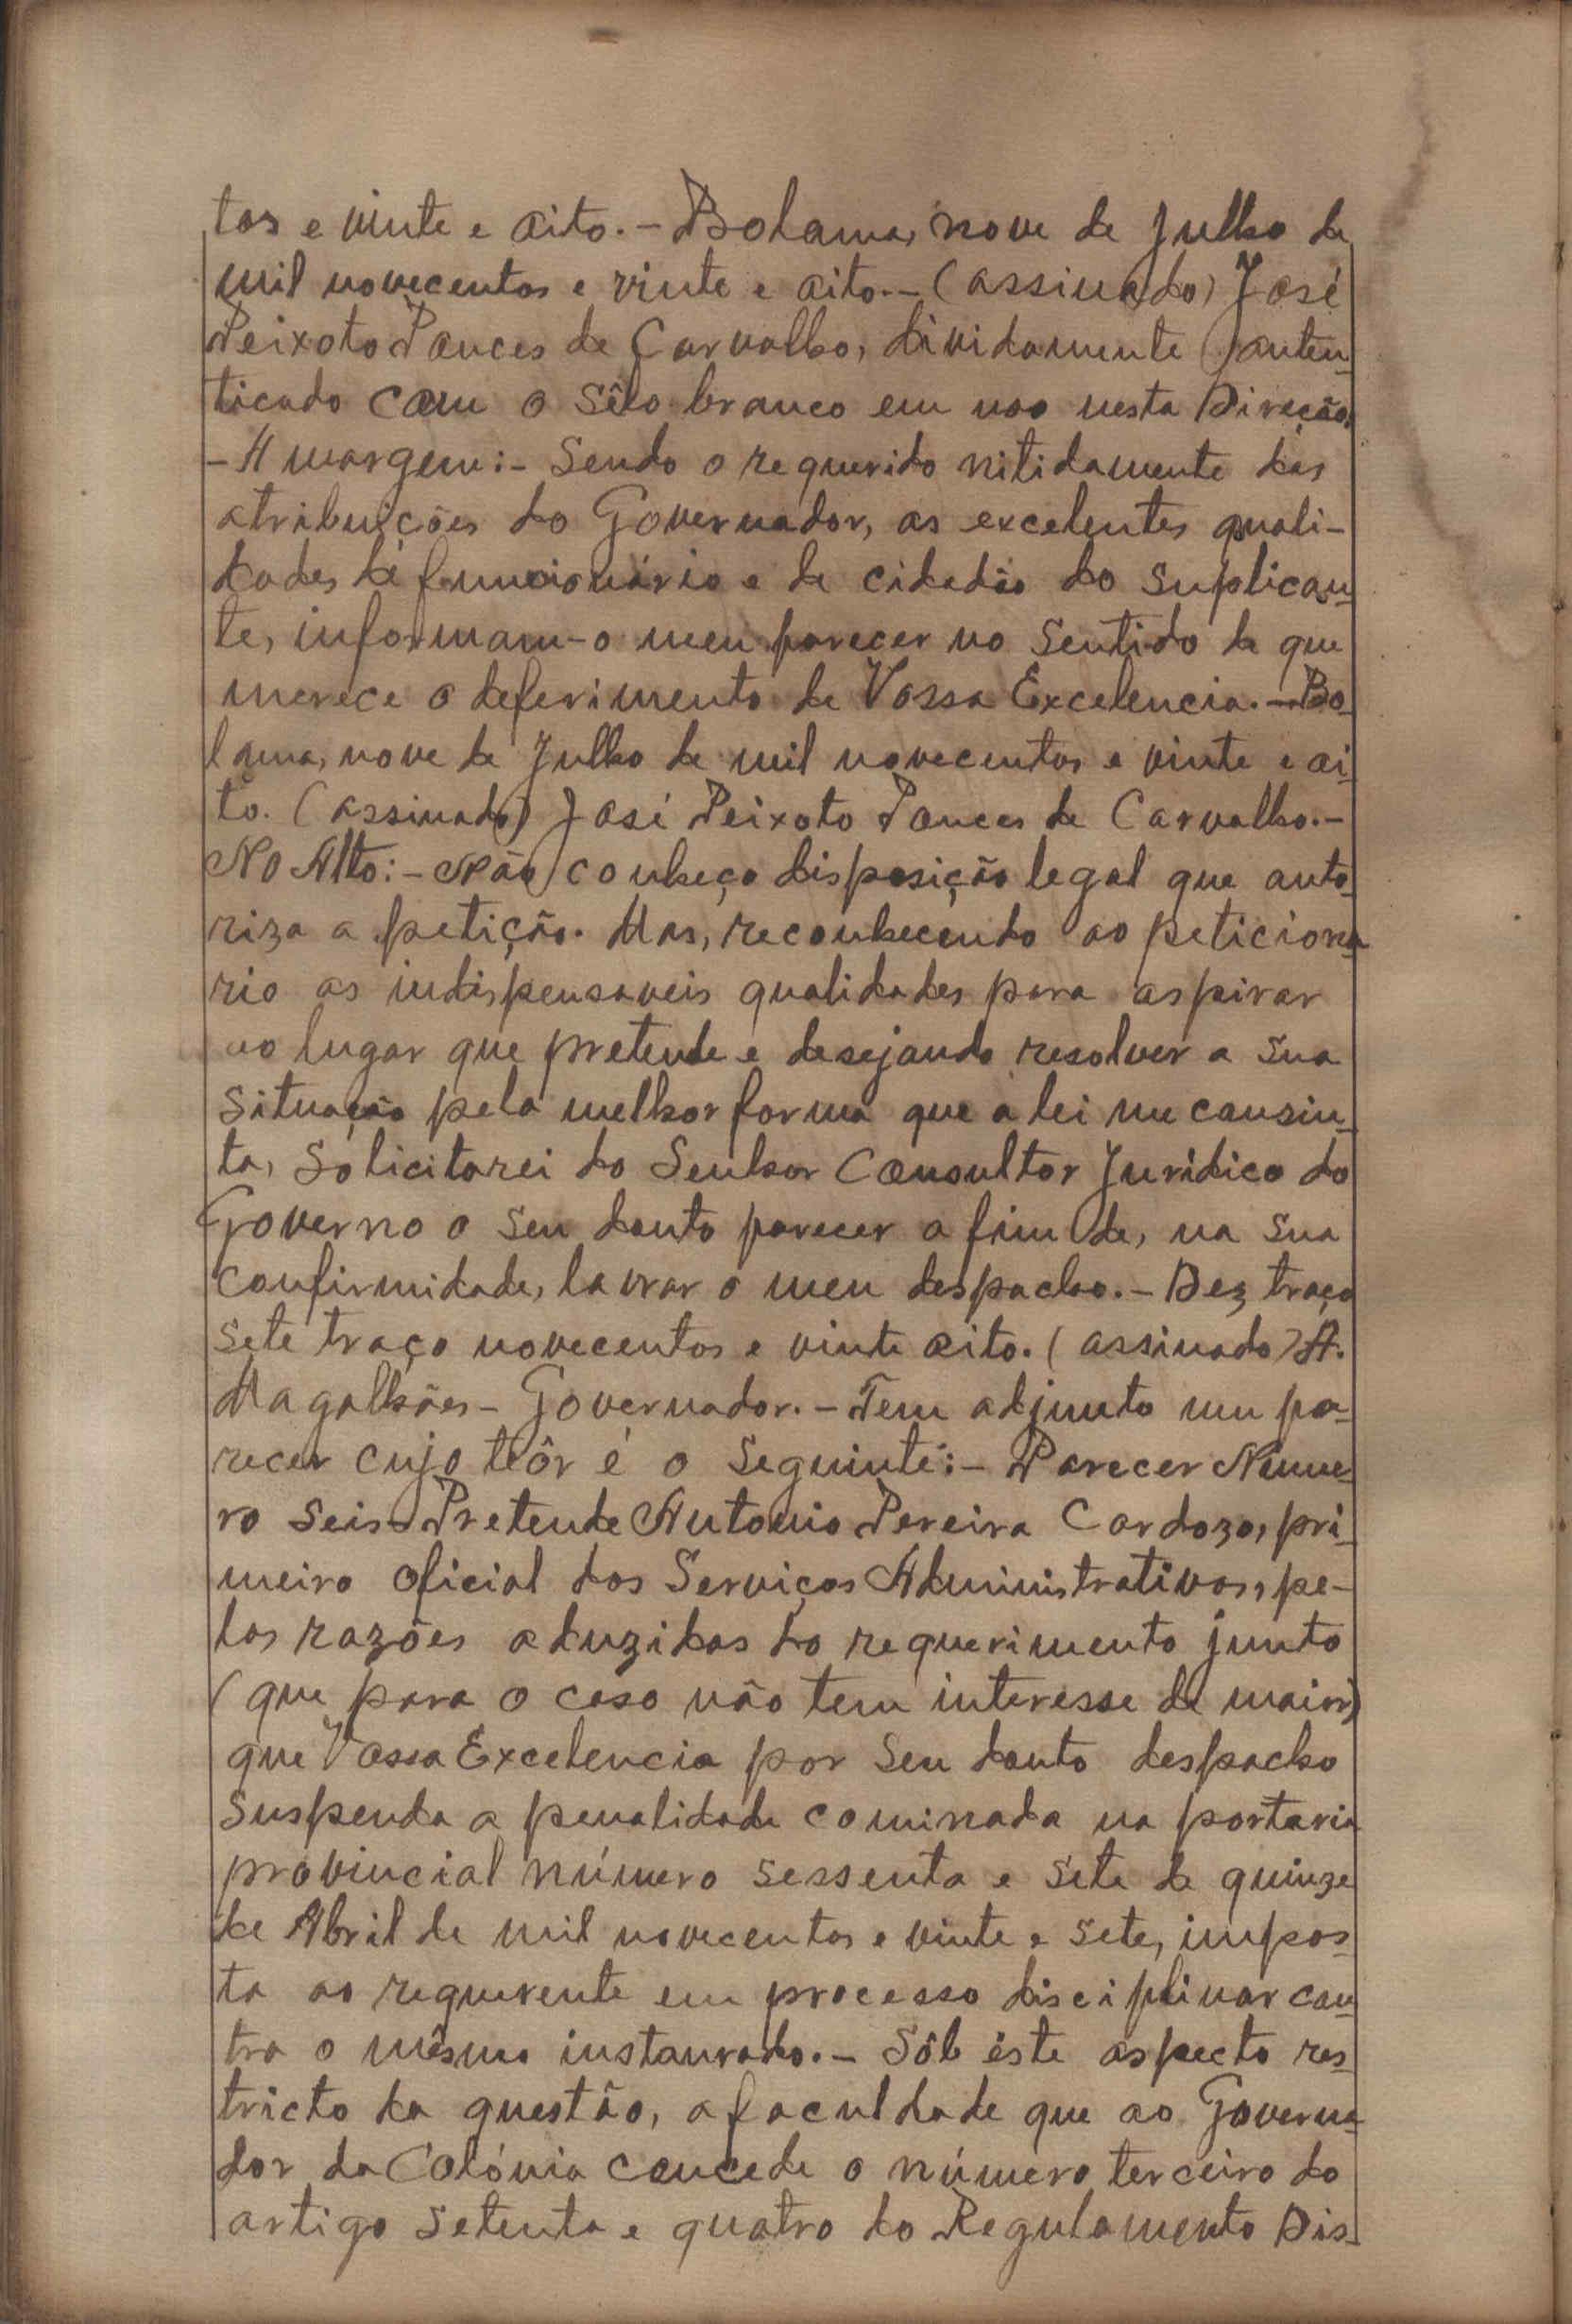 tos e vinte e oito.- Bolama, nove de Julho de
mil novecentos e vinte e oito.- (assinado) José
Peixoto Ponces de Carvalho, dividamente auten-
ticado com o sêlo branco em uso nesta Direcção.
- A margem:- Sendo o requerido nitidamente das
atribuições do Governador, as excelentes quali-
dades de funcionário e de cidadão do suplican-
te, informam-o meu parecer no sentido de que
merece o deferimento de Vossa Excelencia.- Bo-
lama, nove de Julho de mil novecentos e vinte e oi-
to. (assinado) José Peixoto Ponces de Carvalho.-
No Alto:- Não conheço disposição legal que auto-
riza a petição. Mas, reconhecendo ao peticioná-
rio as indispensaveis qualidades para aspirar
ao lugar que pretende e desejando resolver a sua
situação pela melhor forma que a lei me consin-
ta, solicitarei do Senhor Consultor Jurídico do
Governo o seu douto parecer a fim de, na sua
confirmidade, lavrar o meu despacho.- Dez traço
sete traço novecentos e vinte oito. (assinado) A.
Magalhães - Governador.- Tem adjunto um pa-
recer cujo teôr é o seguinte:- Parecer Núme-
ro seis- Pretende Antonio Pereira Cardozo, pri-
meiro oficial dos Serviços Administrativos, pe-
las razões aduzidas do requerimento junto
(que para o caso não tem interesse de maior)
que Vossa Excelencia por seu douto despacho
suspenda a penalidade cominada na portaria
provincial número sessenta e sete de quinze
de Abril de mil novecentos e vinte e sete, impos-
ta ao requerente em processo disciplinar con-
tra o mêsmo instaurado.- Sôb êste aspecto res-
tricto da questão, a faculdade que ao Governa-
dor da Colónia concede o número terceiro do
artigo setenta e quatro do Regulamento Dis-